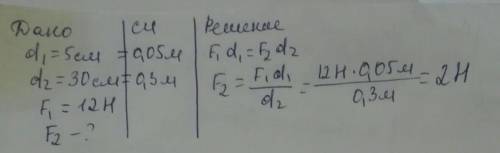 Дано
d₁ = 5см
d₂ = 30см
F₁ = 12Н
F₂ - ?
си
= 0,05м
= 0,3м
Решение
F₁ d₁ = F₂ d₂
F₂ = F₁d₁ / d₂ = 12Н · 0,05м / 0,3м = 2Н